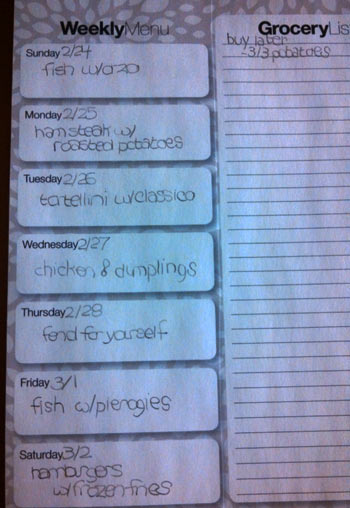 WeeklyMenu
Sunday 2/24
fish w/orzo
Monday 2/25
ham steak w/
roasted potatoes
Tuesday 2/26
tortellini w/classico
Wednesday 2/27
chicken & dumplings
Thursday 2/28
fend for yourself
Friday 3/1
fish w/pierogies
Saturday 3/2
hamburgers
w/frozen fries
GroceryLis
buy later
-3/3 potatoes